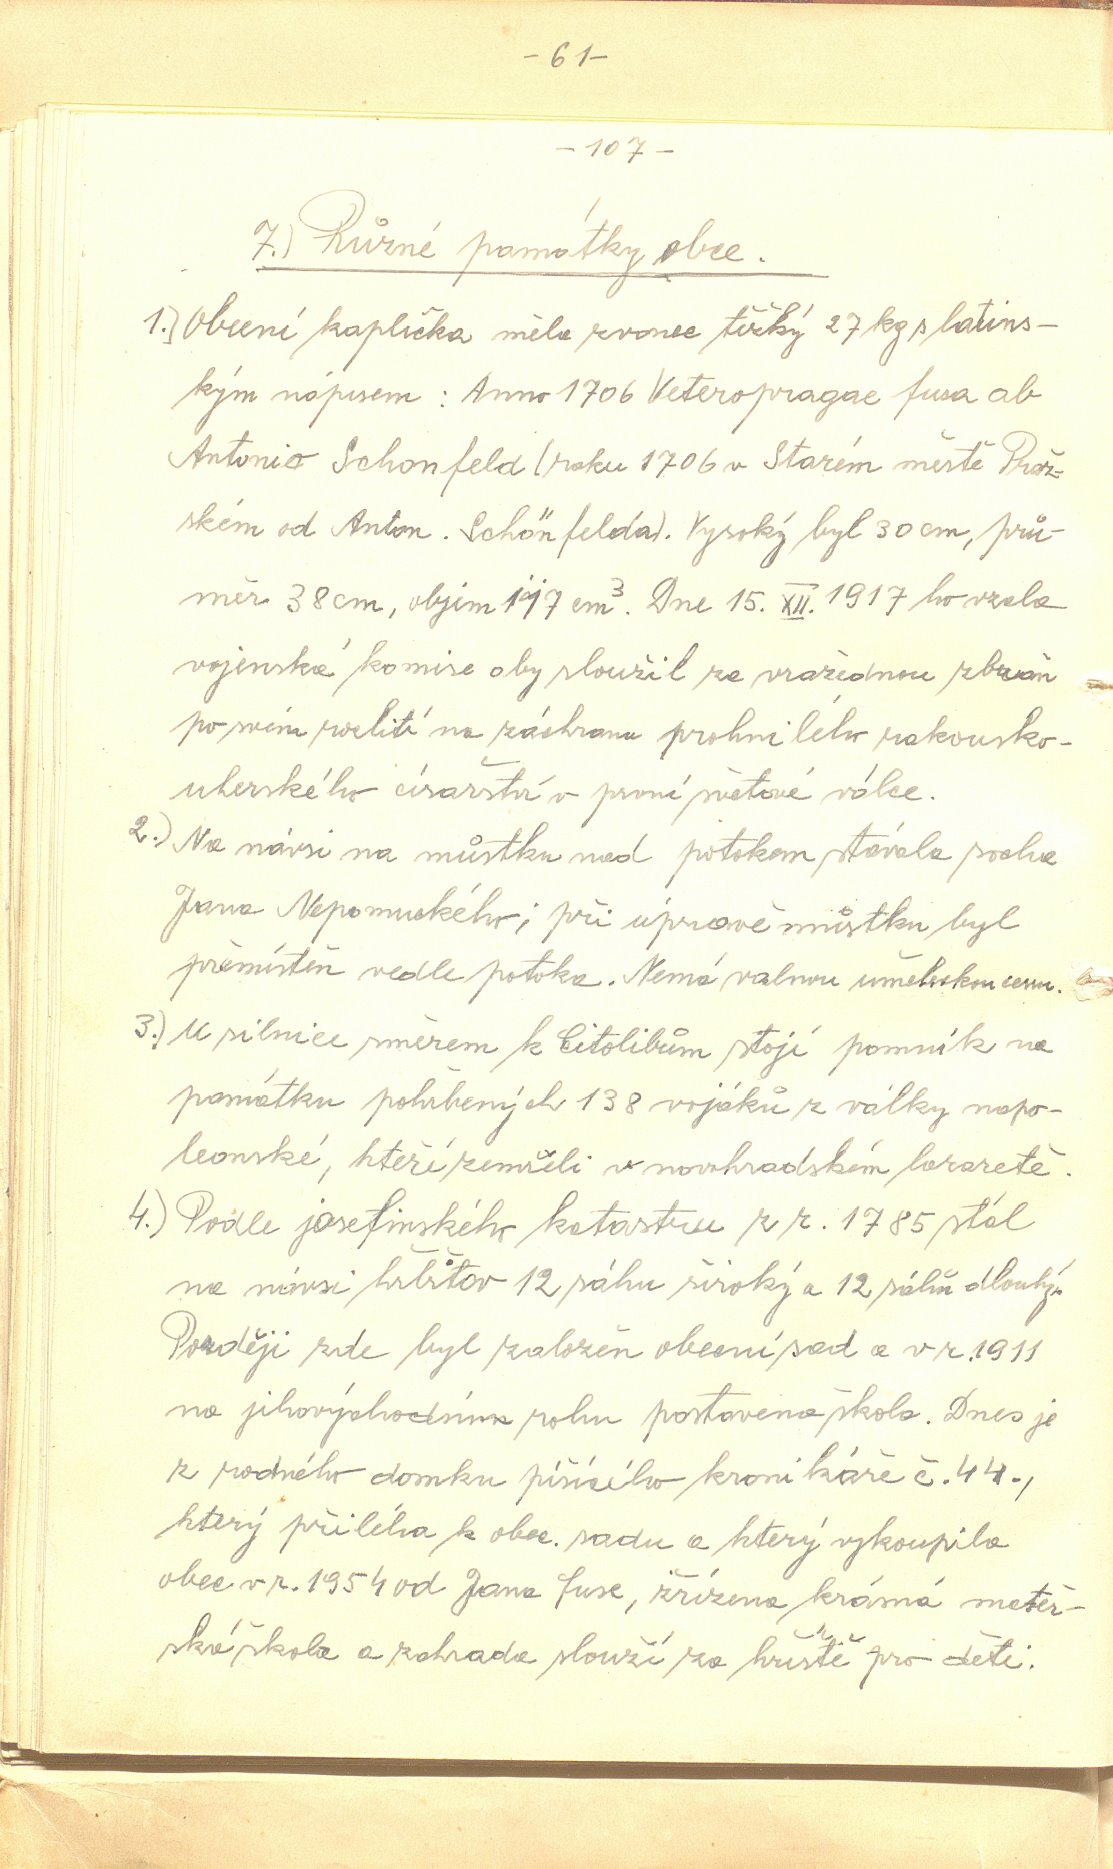 - 61 -
- 107 -
7.) Různé památky obce.
1.) Obecní kaplička měla zvonec těžký 27 kg s latins-
kým nápisem : Anno 1706 Veteropragae fusa ab
Antonio Schonfeld (roku 1706 v Starém městě Praž-
ském od Anton. Schönfelda). Vysoký byl 30 cm, prů-
měr 38 cm, objem cm³. Dne 15. XII. 1917 ho vzala
vojenská komise aby sloužil za vražednou zbraň
po svém rozlití na záchranu prohnilého rakousko-
uherského císařství v první světové válce.
2.) Na návsi na můstku nad potokem stávala socha
Jana Nepomuckého; při úpravě můstku byl
přemístěn vedle potoka. Nemá valnou uměleckou cenu.
3.) U silnice směrem k Citolibům stojí pomník na
památku pohřbených 138 vojáků z války napo-
leonské, kteří zemřeli v novohradském lazaretě.
4.) Podle josefinského katastru z r. 1785 stál
na návsi hřbitov 12 sáhu široký a 12 sáhů dlouhý.
Později zde byl založen obecní sad a v r. 1911
na jihovýchodním rohu postavena škola. Dnes je
z rodného domku píšícího kronikáře č. 44.,
který přiléhá k obec. sadu a který vykoupila
obec v r. 1954 od Jana Fuse, zřízena krásná mateř-
ská škola a zahrada slouží za hřiště pro děti.